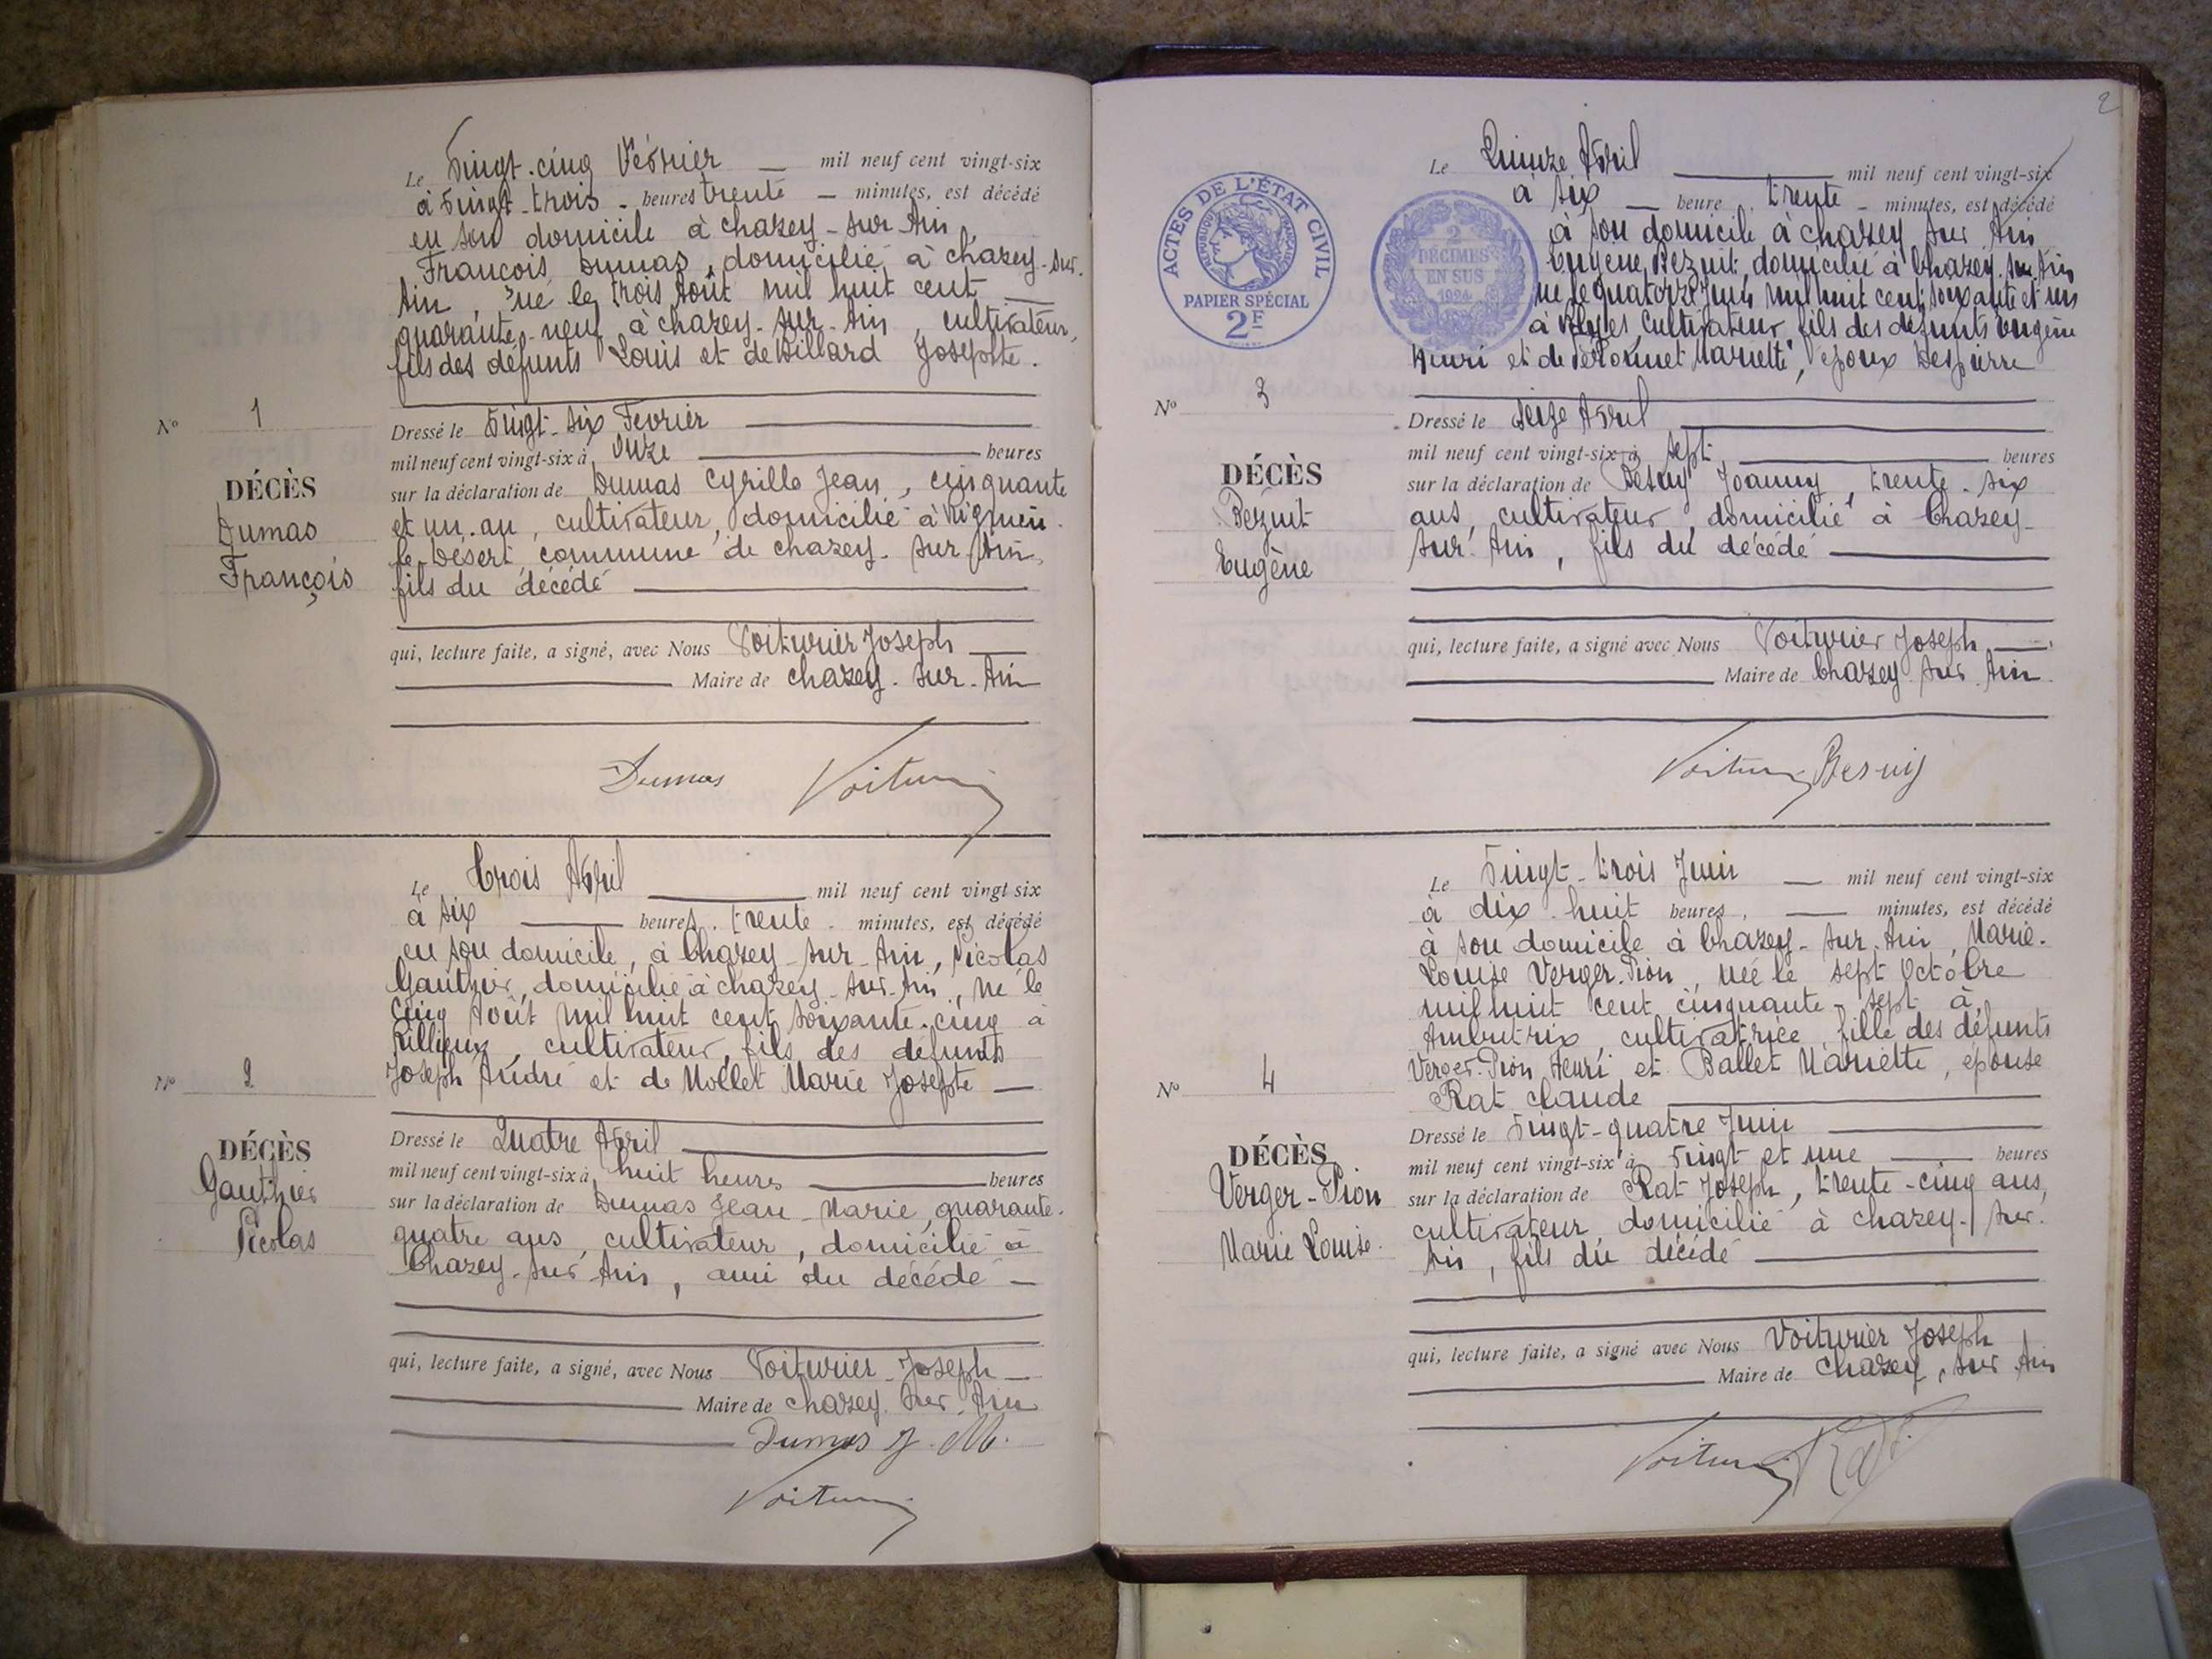 Le Vingt-cinq Février — mil neuf cent vingt-six
à vingt-trois - heures trente — minutes, est décédé
en son domicile à chazey-sur-Ain
François Dumas, domicilié à chazey-sur-
Ain, né le trois Août mil huit cent
quarante-neuf à chazey-sur-Ain, cultivateur,
fils des défunts Louis et de Billard Josephte.
No 1
DÉCÈS
Dumas
François
Dressé le Vingt-six Fevrier
mil neuf cent vingt-six à Onze heures
sur la déclaration de Dumas Cyrille Jean, cinquante
et un an, cultivateur, domicilié à Rignieu
le-Desert commune de chazey-sur-Ain,
fils du décédé
qui, lecture faite, a signé, avec Nous Voiturier Joseph
Maire de chazey-sur-Ain
Dumas Voiturier
Le trois Avril mil neuf cent vingt six
à six heures. trente. minutes, est décédé
en son domicile, à Chazey-sur-Ain, Nicolas
Gauthier, domicilié à chazey-sur-Ain, né le
cinq Août mil huit cent soixante-cinq à
Rillieux, cultivateur, fils des défunts
Joseph André et de Mollet Marie Josepte —
No 2
DÉCÈS
Gauthier
Nicolas
Dressé le Quatre Avril
mil neuf cent vingt-six à huit heures heures
sur la déclaration de Dumas Jean-Marie, quarante-
quatre ans, cultivateur, domicilié à
Chazey-sur-Ain, ami du décédé —
qui, lecture faite, a signé, avec Nous Voiturier Joseph
Maire de chazey-sur-Ain
Dumas J. M.
Voiturier
2
ACTES DE L'ÉTAT CIVIL
RÉPUBLIQUE FRANÇAISE
PAPIER SPÉCIAL
2F
2
DÉCIMES
EN SUS
1924
Le Quinze Avril mil neuf cent vingt-six
à six — heure trente — minutes, est décédé
à son domicile à chazey sur Ain
Eugène Bezuit, domicilié à Chazey-sur-Ain
né le quatorze Juin mil huit cent soixante et un
à Blyes, cultivateur, fils des défunts Eugène
Henri et de Peronnet Mariette, époux Despierre
No 3
DÉCÈS
Bezuit
Eugène
Dressé le seize Avril
mil neuf cent vingt-six à sept heures
sur la déclaration de Joanny, trente-six
ans, cultivateur, domicilié à Chazey-
sur-Ain, fils du décédé
qui, lecture faite, a signé avec Nous Voiturier Joseph
Maire de Chazey-sur-Ain.
Voiturier
Le Vingt-trois Juin — mil neuf cent vingt-six
à dix-huit heures, — minutes, est décédé
à son domicile à Chazey-sur-Ain, Marie-
Louise Verger-Pion, née le sept Octobre
mil huit cent cinquante-sept à
Ambutrix, cultivatrice, fille des défunts
Verger-Pion Henri et Ballet Mariette, épouse
Rat claude
No 4
DÉCÈS
Verger-Pion
Marie Louise.
Dressé le Vingt-quatre Juin
mil neuf cent vingt-six à vingt et une heures
sur la déclaration de Rat Joseph, trente-cinq ans,
cultivateur domicilié à chazey-sur-
Ain, fils du décédé
qui, lecture faite, a signé avec Nous Voiturier Joseph
Maire de Chazey, sur Ain
Voiturier Rat